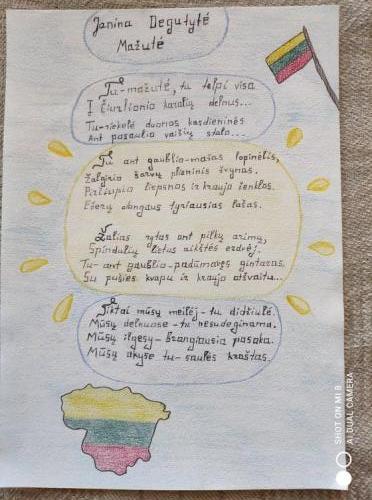 Janina Degutytė
Mažutė
Tu-mažutė, tu telpi visa
Į Čiurlionio karalių delnus...
Tu-riekelė duonos kasdieninės
Ant pasaulio vaišių stalo...
Tu ant gaublio-mažas lopinėlis,
Žalgirio šarvų plieninis žvynas.
Pirčiupio liepsnos ir kraujo ženklas.
Ežerų dangaus tyriausias lašas.
Žalias rytas ant pilkų arimų,
Spindulių lietus aikštės erdvėj.
Tu-ant gaublio-padūmavęs gintaras
Su pušies kvapu ir kraujo atšvaitu...
Tiktai mūsų meilėj-tu didžiulė.
Mūsų delnuose-tu nesudeginama.
Mūsų ilgesy-brangiausia pasaka.
Mūsų akyse tu-saulės kraštas.
SHOT ON MI 8
AI DUAL CAMERA